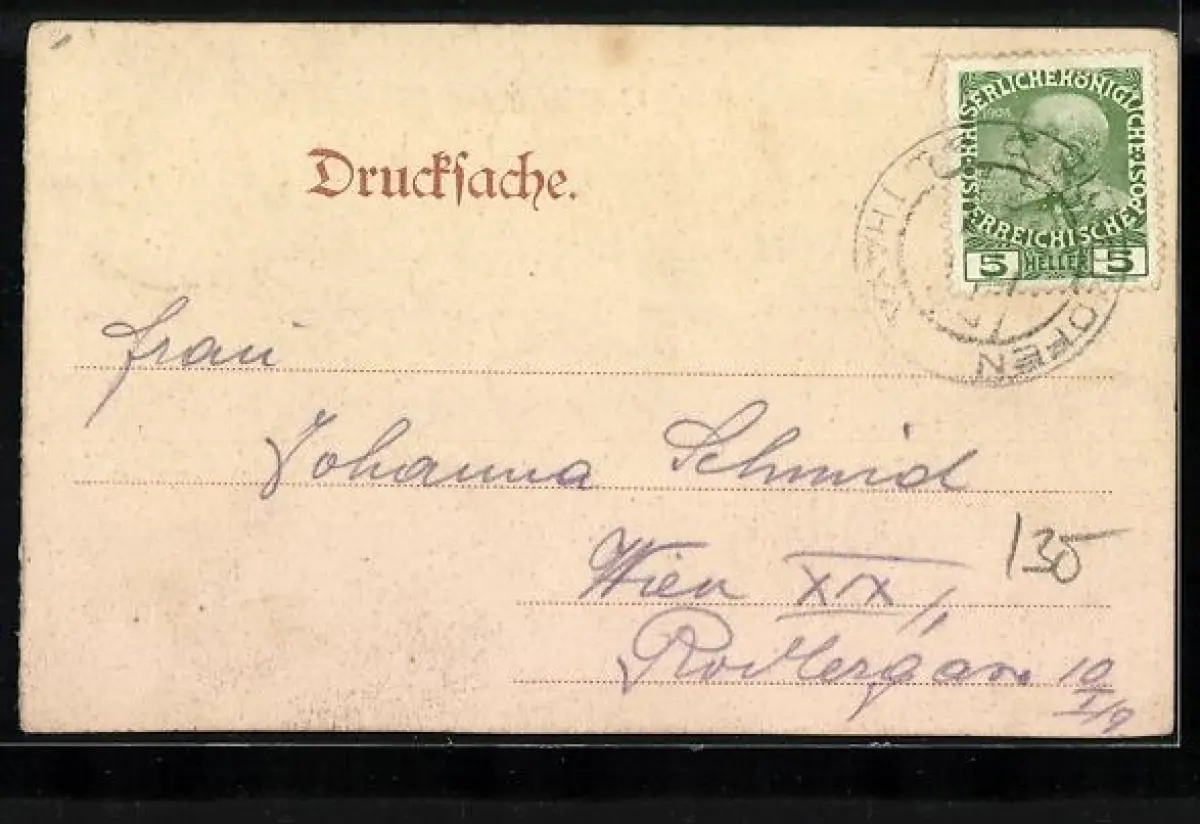 Drucksache.
KAISERLICHE KÖNIGLICHE
ÖSTERREICHISCHE POST
5 HELLER 5
Frau
Johanna Schmid
135
Wien XIX/1
Rodlergasse 10
I/9